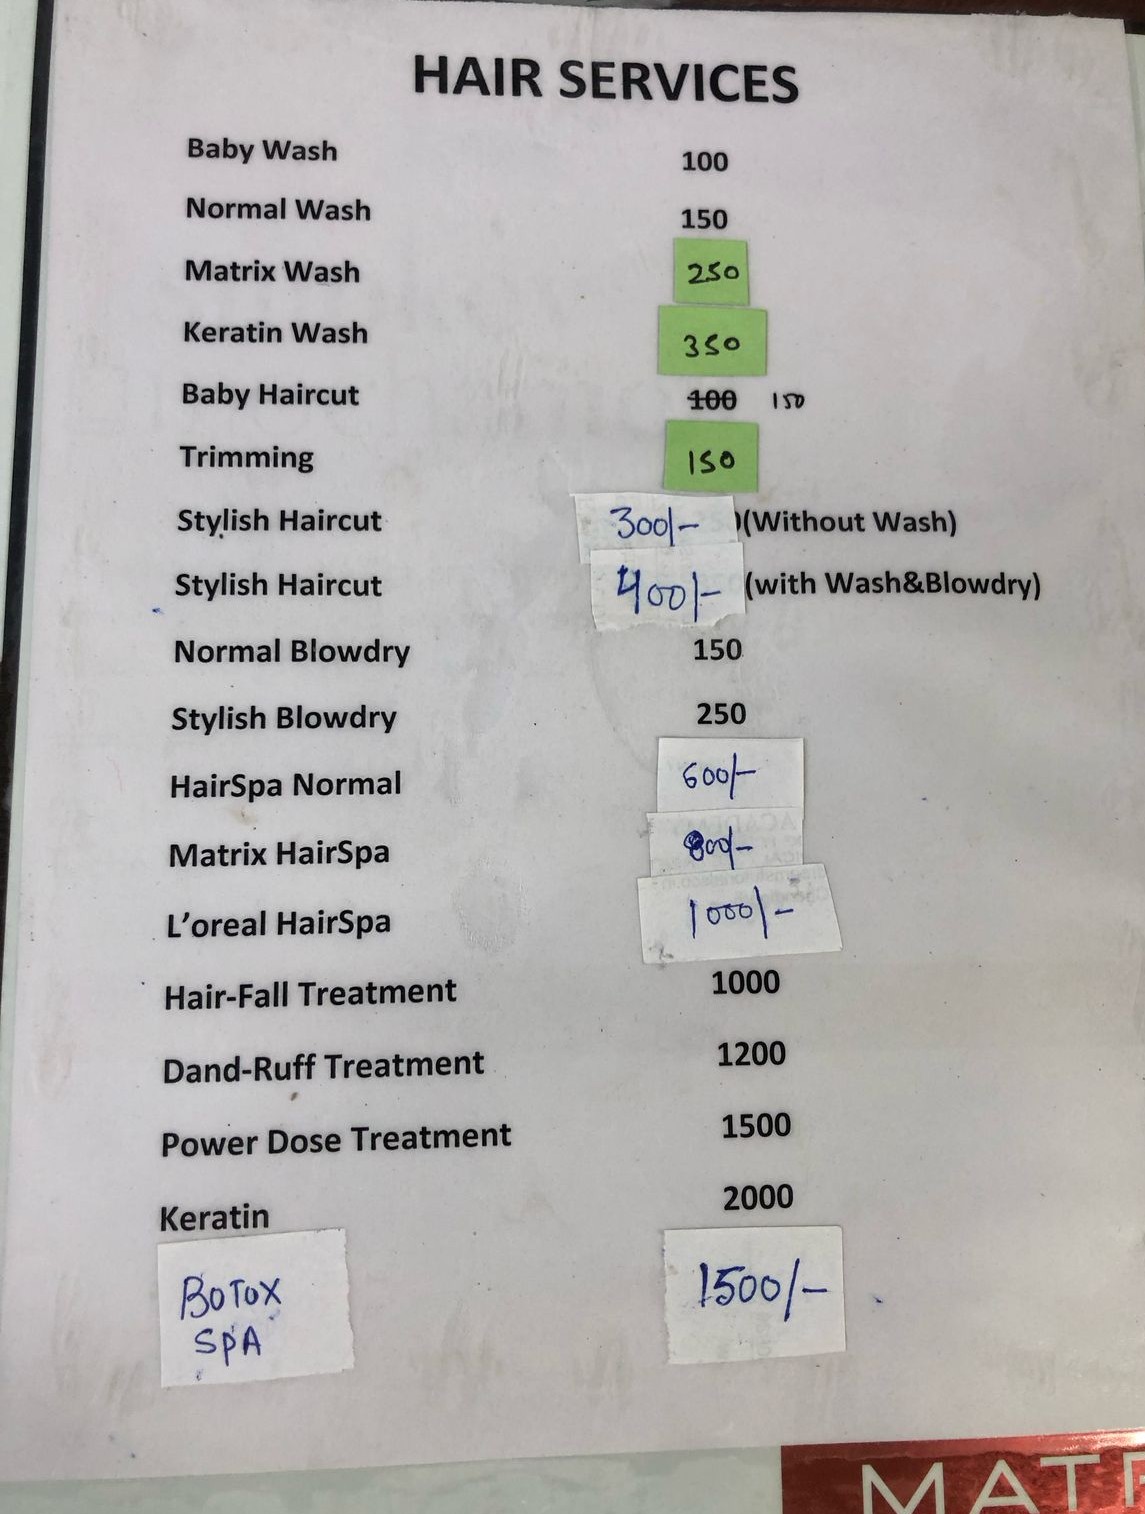 HAIR SERVICES
Baby Wash 100
Normal Wash 150
Matrix Wash 250
Keratin Wash 350
Baby Haircut 100 150
Trimming 150
Stylish Haircut 300/- (Without Wash)
Stylish Haircut 400/- (with Wash&Blowdry)
Normal Blowdry 150
Stylish Blowdry 250
HairSpa Normal 600/-
Matrix HairSpa 800/-
L'oreal HairSpa 1000/-
Hair-Fall Treatment 1000
Dand-Ruff Treatment 1200
Power Dose Treatment 1500
Keratin 2000
BOTOX 1500/-
SPA
MATR